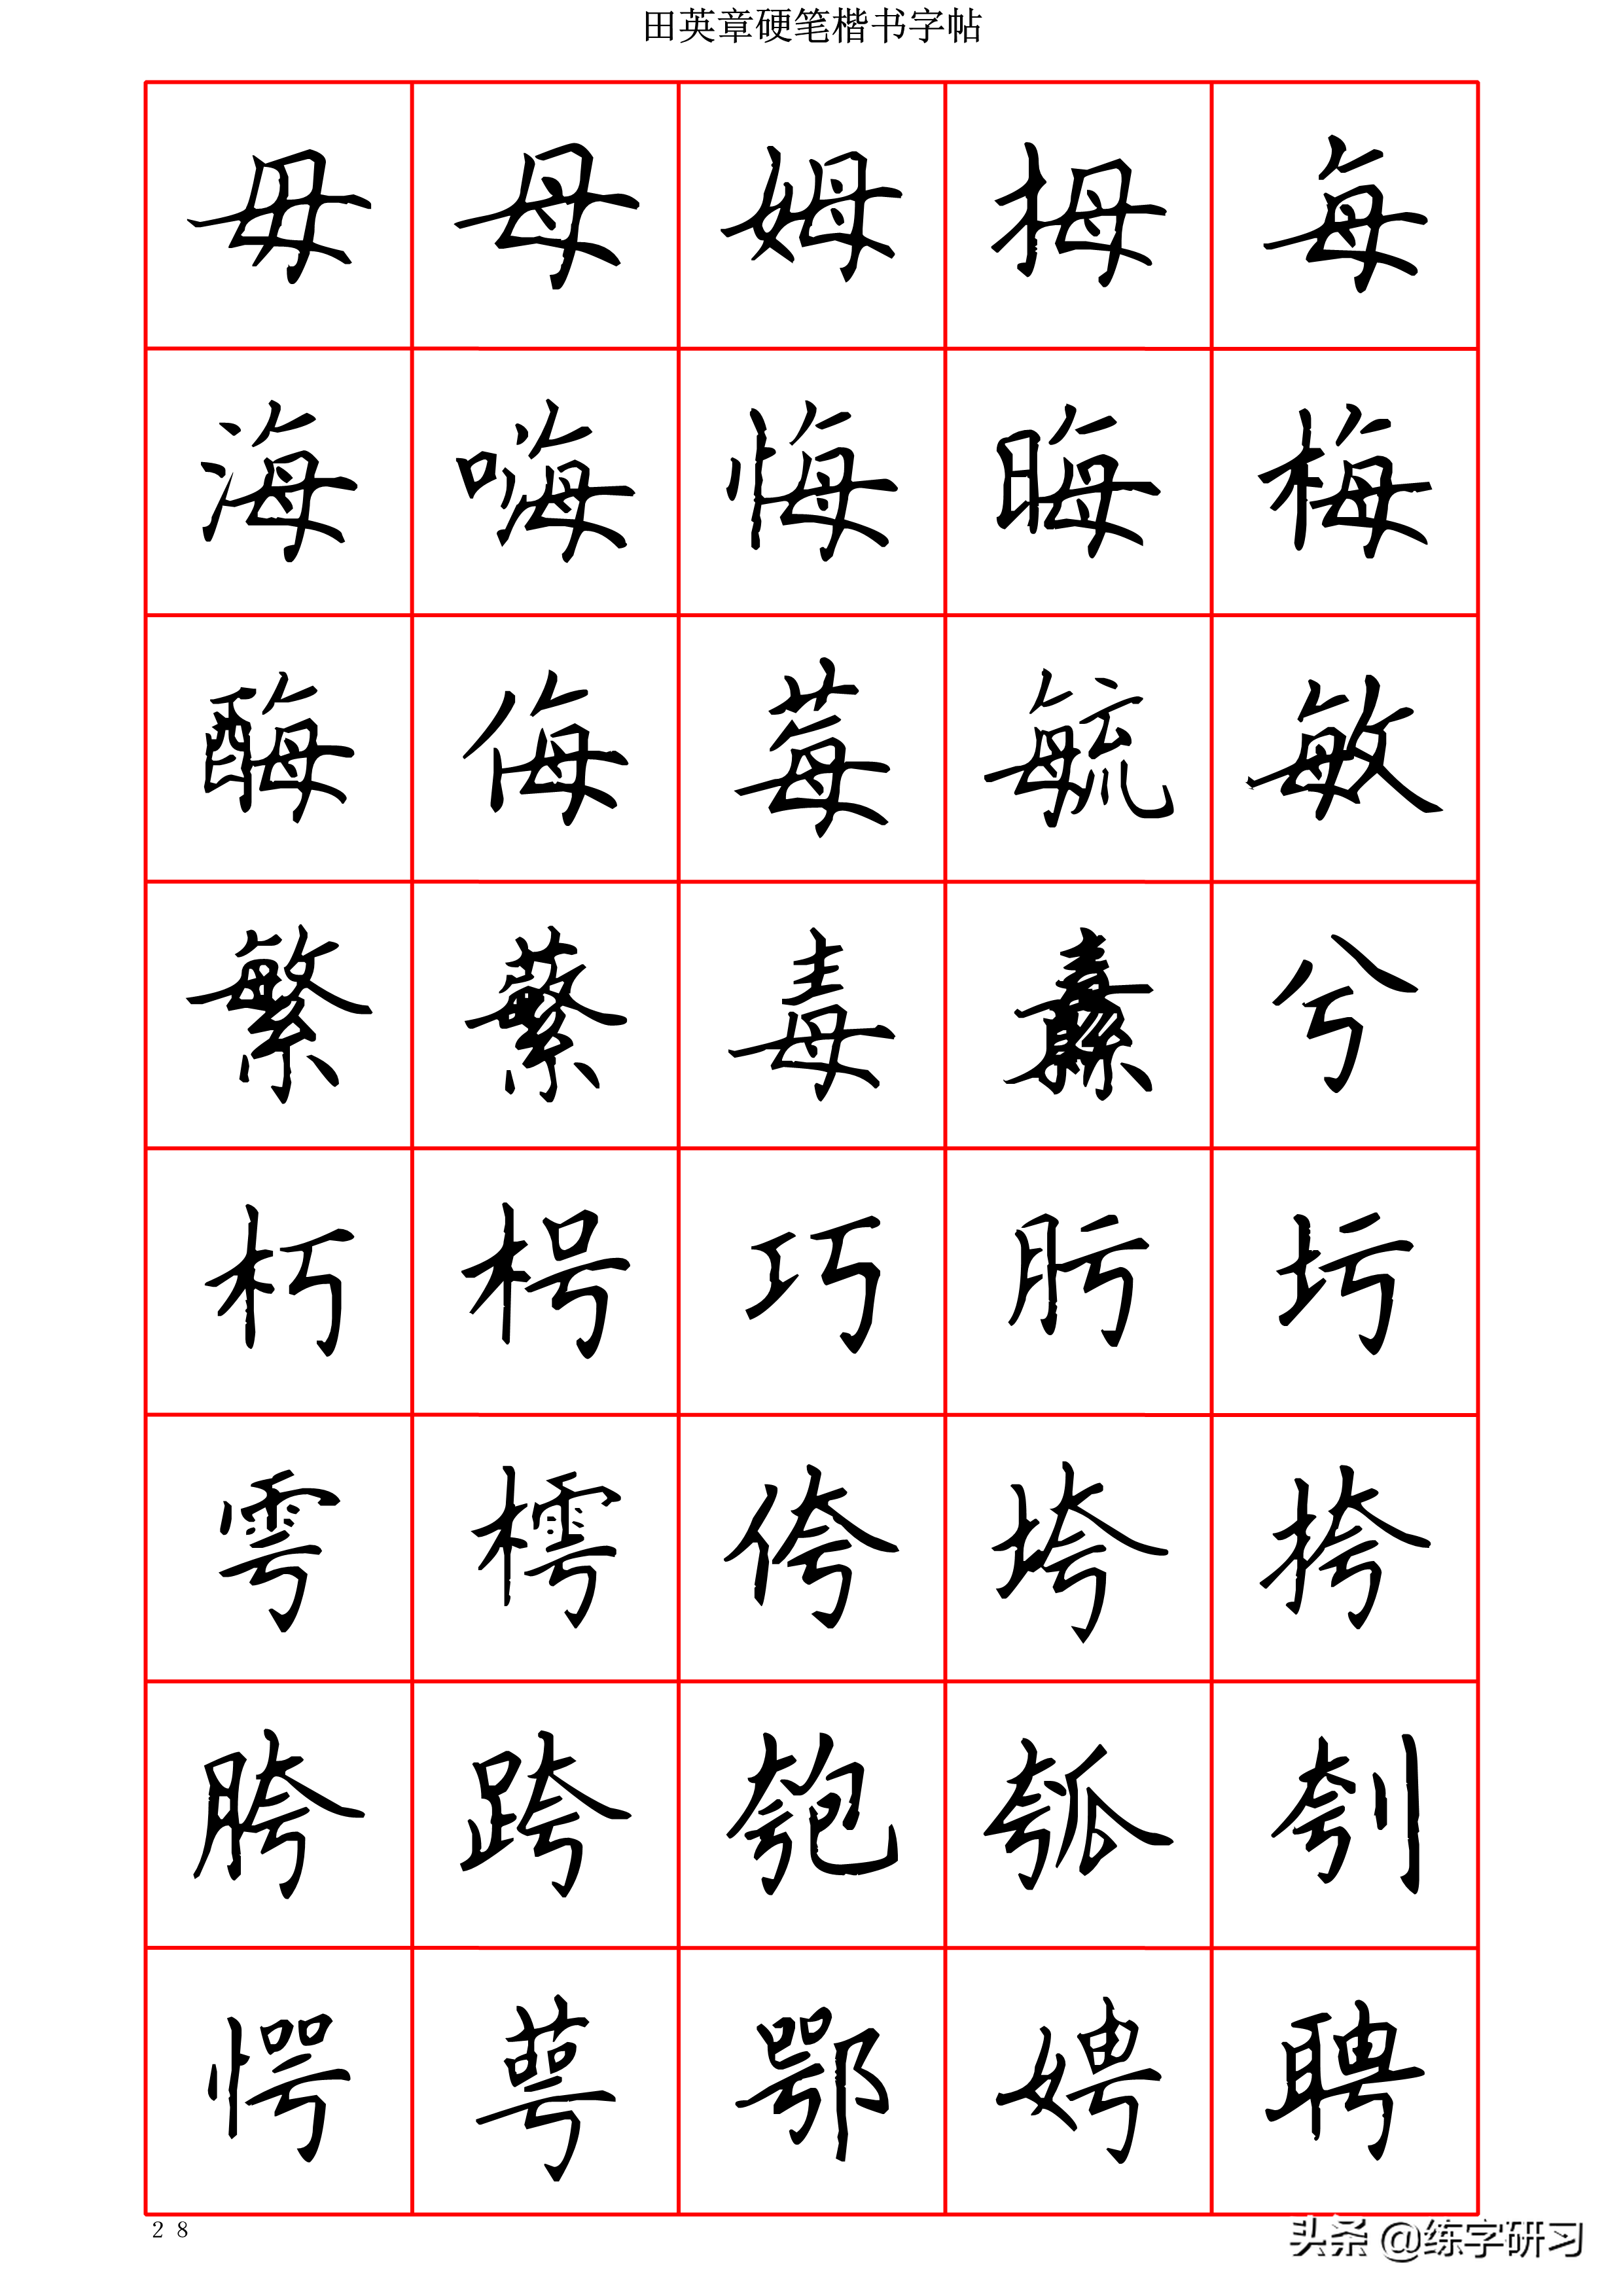 田英章硬笔楷书字帖
毋母姆拇每
海嗨悔晦梅
酶侮莓毓敏
繁蘩毒纛兮
朽枵巧肟圬
雩樗侉垮挎
胯跨匏瓠刳
愕萼鄂娉聘
28
头条 @练字研习